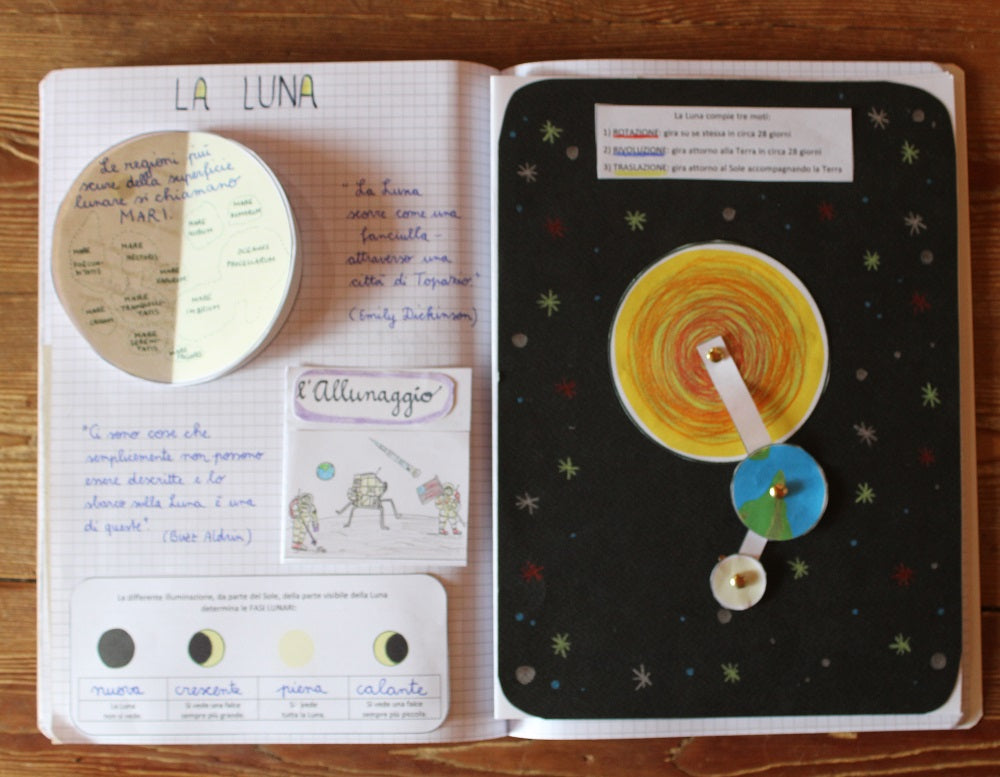 LA LUNA
Le regioni più
scure della superficie
lunare si chiamano
MARI.
MARE
HUMORUM
MARE
NUBIUM
OCEANUS
PROCELLARUM
MARE
NECTARIS
MARE
MARE
VAPORUM
MARE
TRANQUILLI-
TATIS
MARE
IMBRIUM
MARE
CRISIUM
MARE
SERENI-
TATIS
MARE
"La Luna
scorre come una
fanciulla -
attraverso una
città di Topazio."
(Emily Dickinson)
l'Allunaggio
"Ci sono cose che
semplicemente non possono
essere descritte e lo
sbarco sulla Luna è una
di queste".
(Buzz Aldrin)
La differente illuminazione, da parte del Sole, della parte visibile della Luna
determina le FASI LUNARI:
nuova crescente piena calante
La Luna
non si vede.
Si vede una falce
sempre più grande.
Si vede
tutta la Luna.
Si vede una falce
sempre più piccola.
La Luna compie tre moti:
1) ROTAZIONE: gira su se stessa in circa 28 giorni
2) RIVOLUZIONE: gira attorno alla Terra in circa 28 giorni
3) TRASLAZIONE: gira attorno al Sole accompagnando la Terra